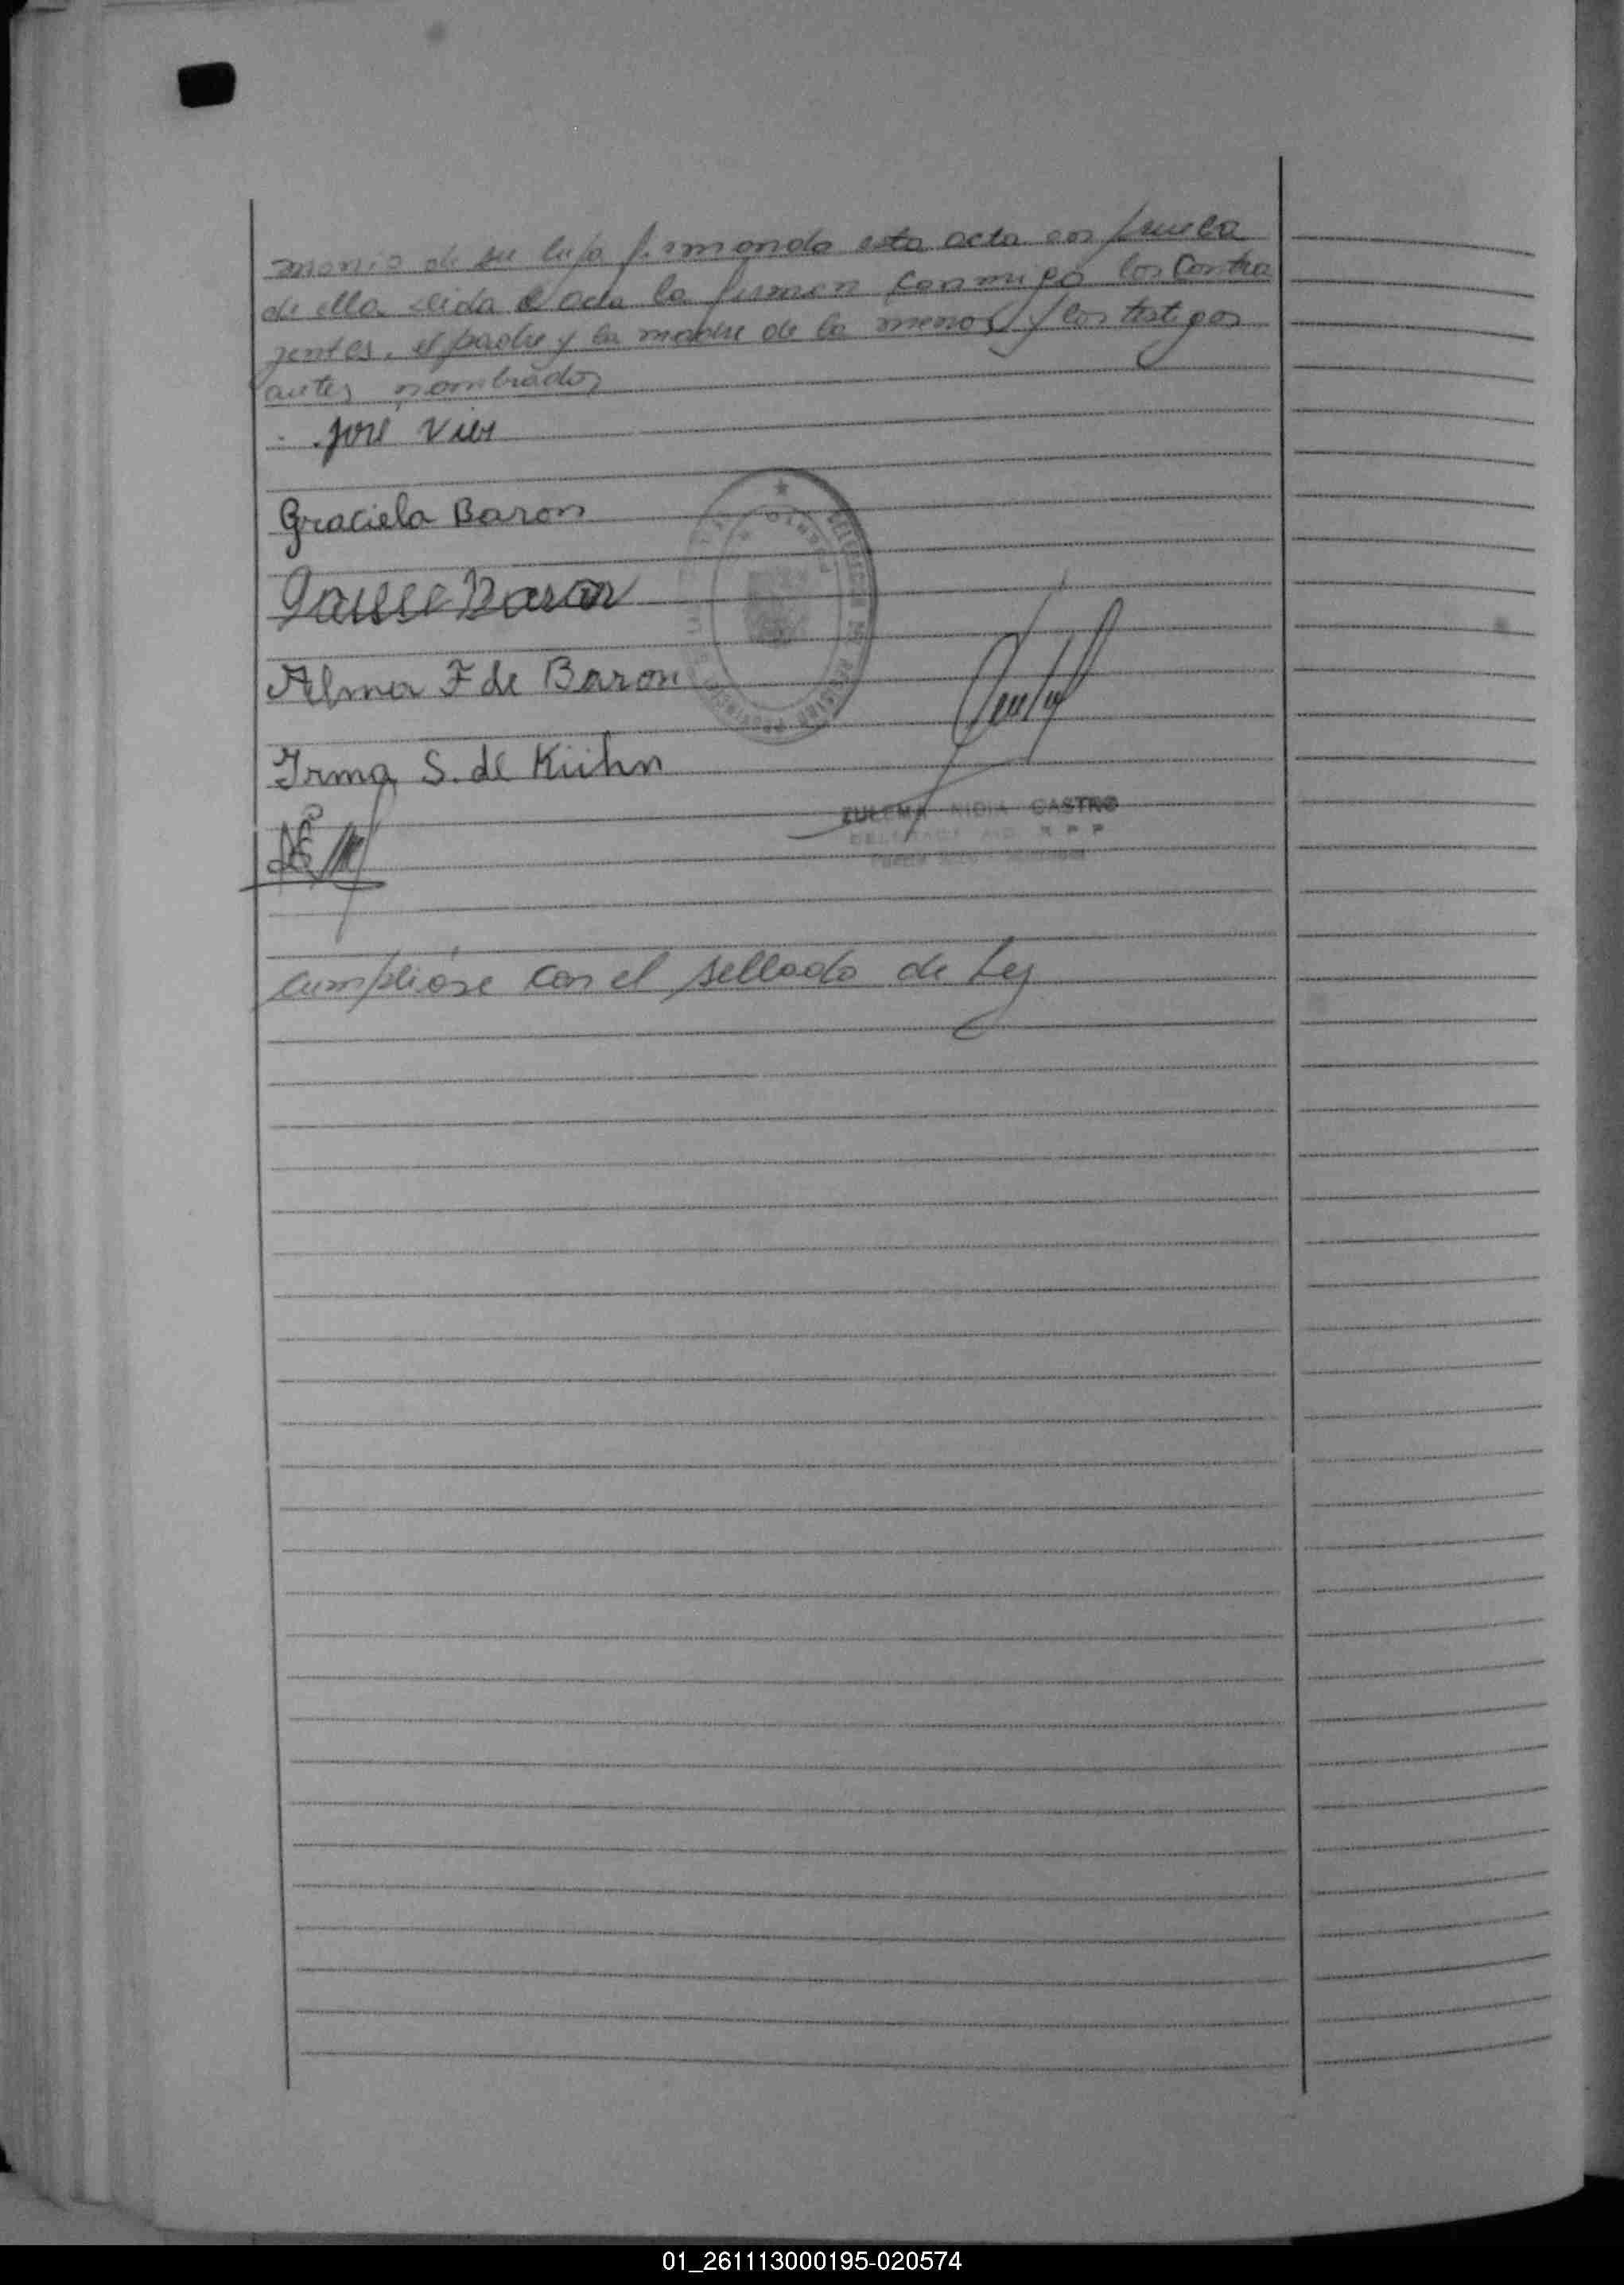 monio de su hija firmando esta acta en prueba
de ella. Leida el acta la firman conmigo los Contra
yentes, el padre y la madre de la menor y los testigos
antes nombrados
José Vier
Graciela Baron
Baron
Alma F de Baron
Irma S. de Kühn
ZULEMA NIDIA CASTRO
cumplióse con el sellado de Ley
01_261113000195-020574